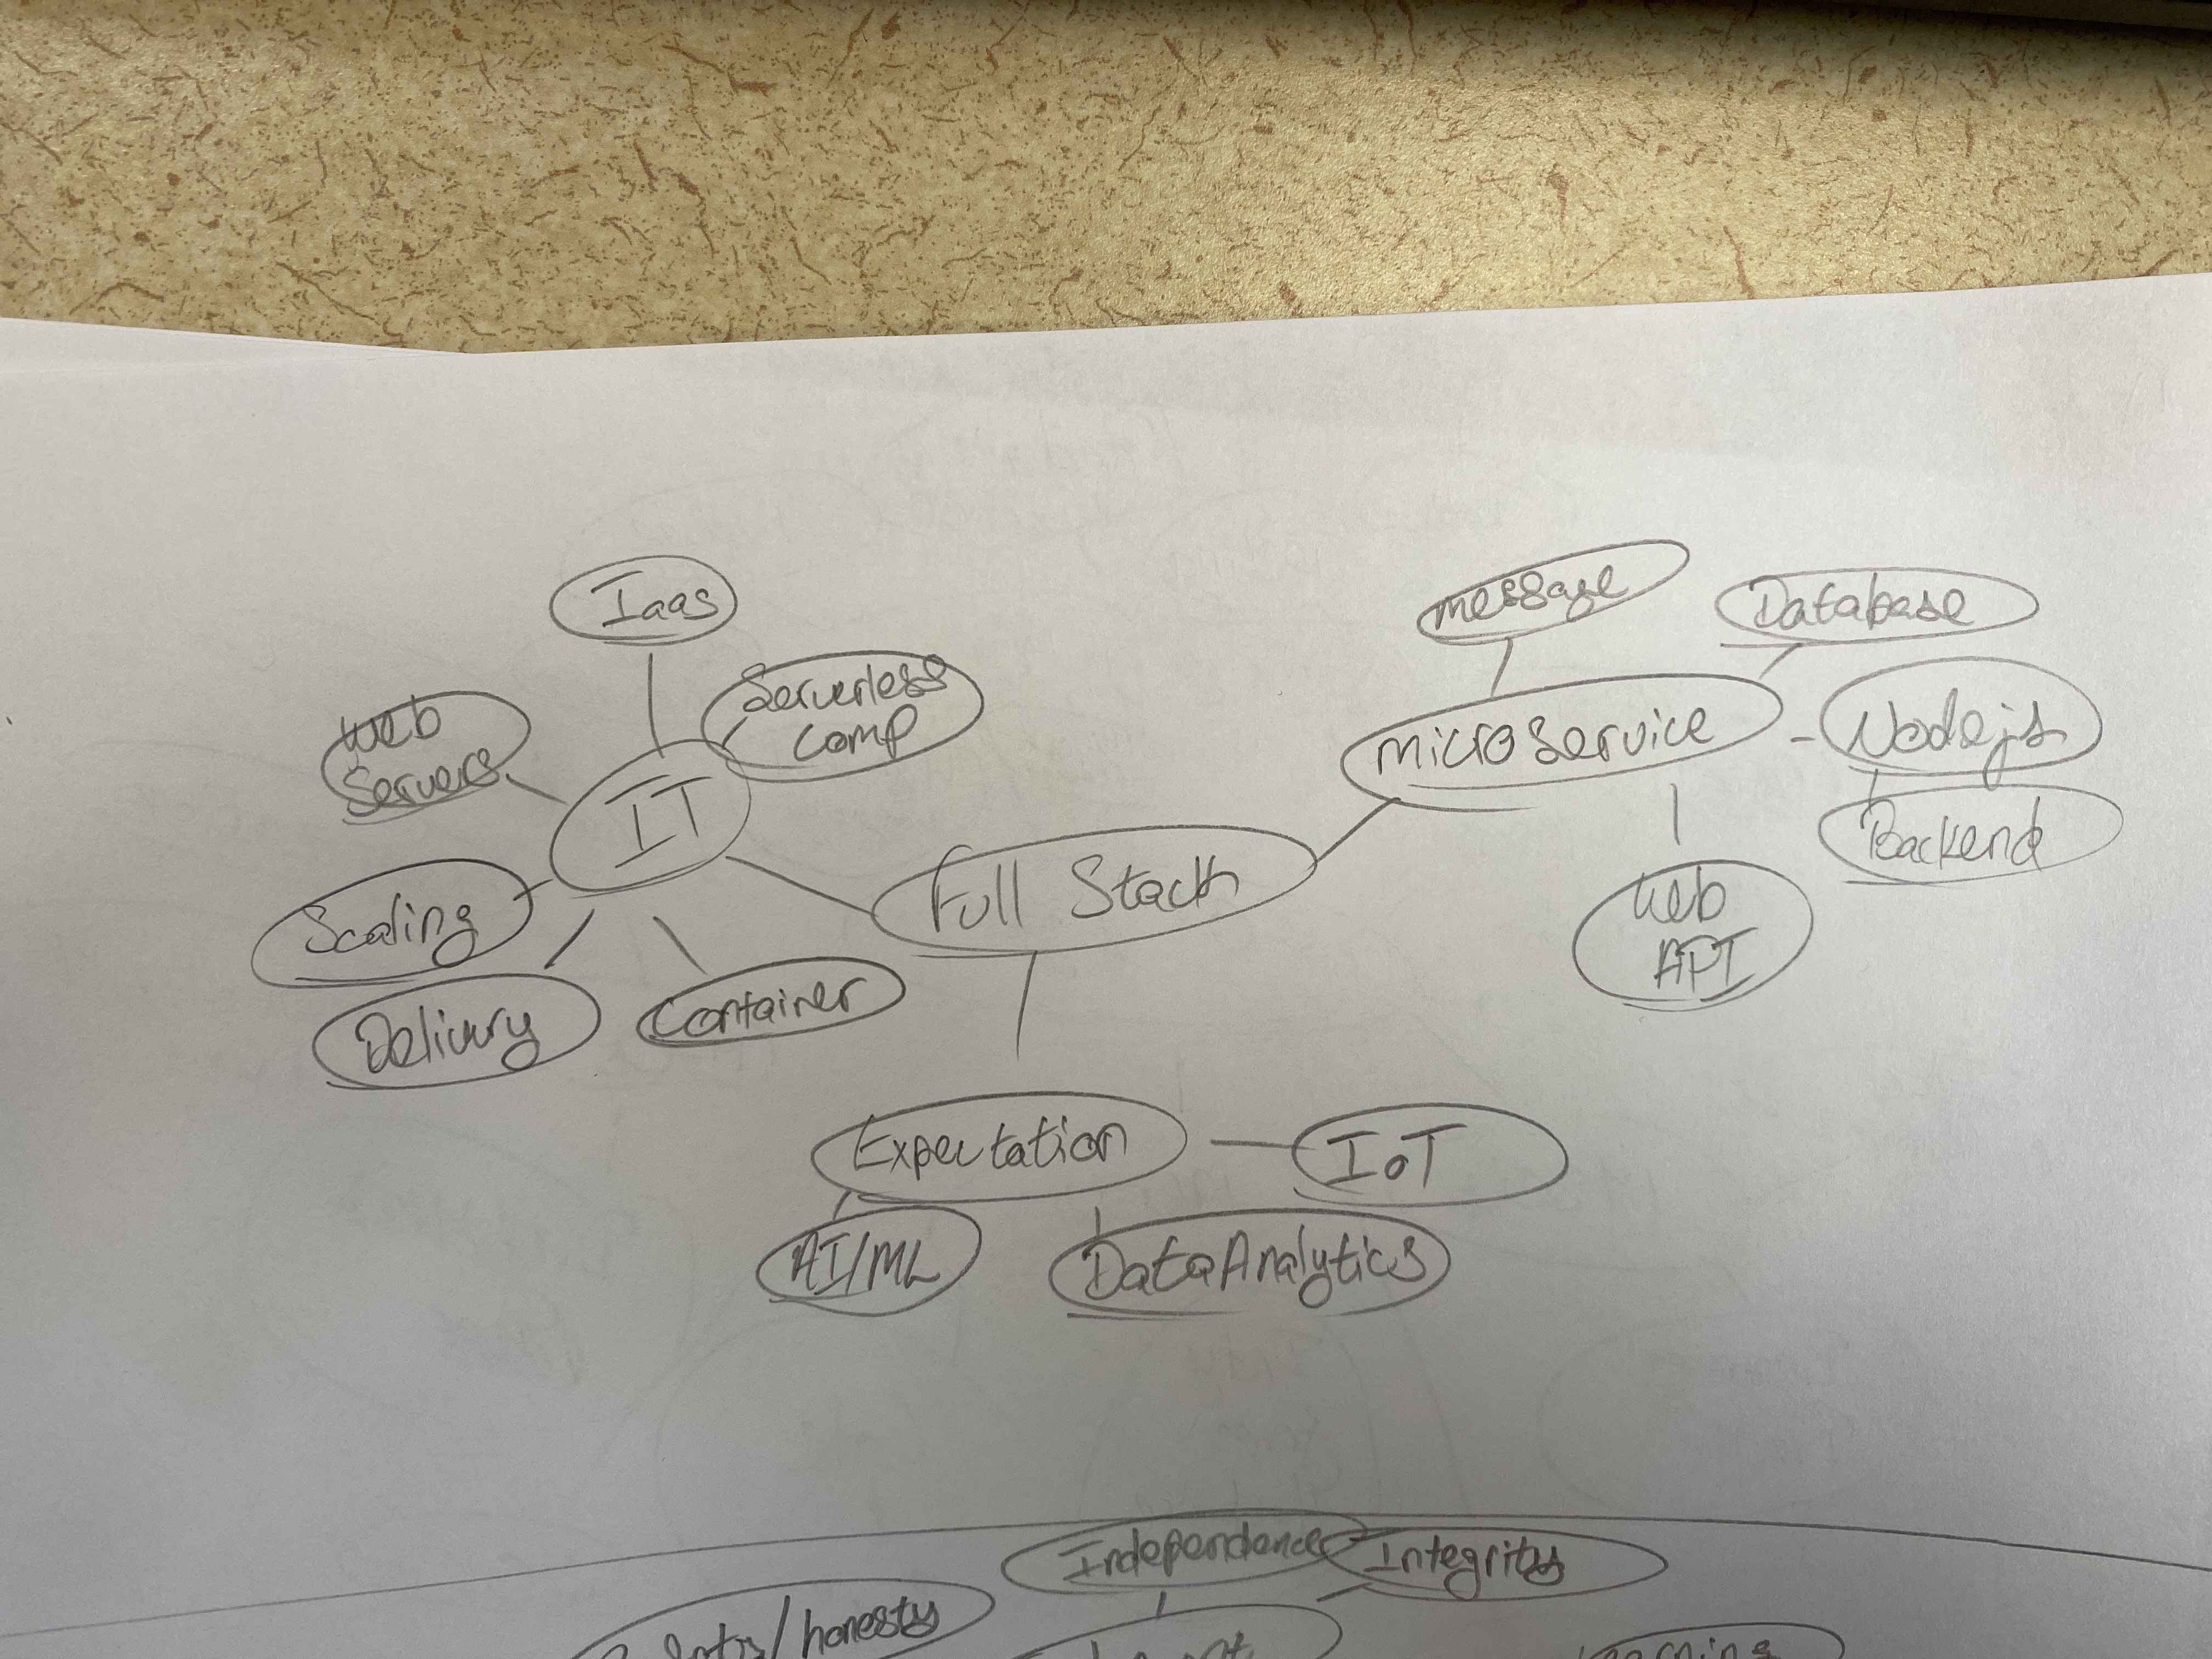 Iaas
Serverless
comp
Web
Servers
IT
Scaling
Delivery
Container
Full Stack
message
Database
microservice
Nodejs
Backend
Web
API
Expectation
IoT
AI/ML
Data Analytics
Independence
Integrity
/honesty
Learning